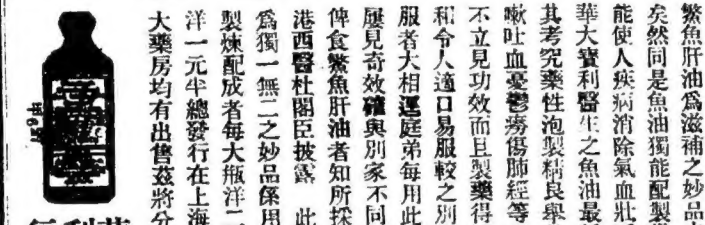 鱉魚肝油爲滋補之妙品
矣然同是魚油獨能配製
能使人疾病消除氣血壯
華大寶利醫生之魚油最
其考究藥性泡製精良舉
嗽吐血憂鬱癆傷肺經等
不立見功效而且製藥得
和令人適口易服較之別
服者大相逕庭弟每用此
屢見奇效確與別家不同
俾食鱉魚肝油者知所採
港西醫杜閣臣披露 此
爲獨一無二之妙品係用
製煉配成者每大瓶洋二
洋一元半總發行在上海
大藥房均有出售茲將分